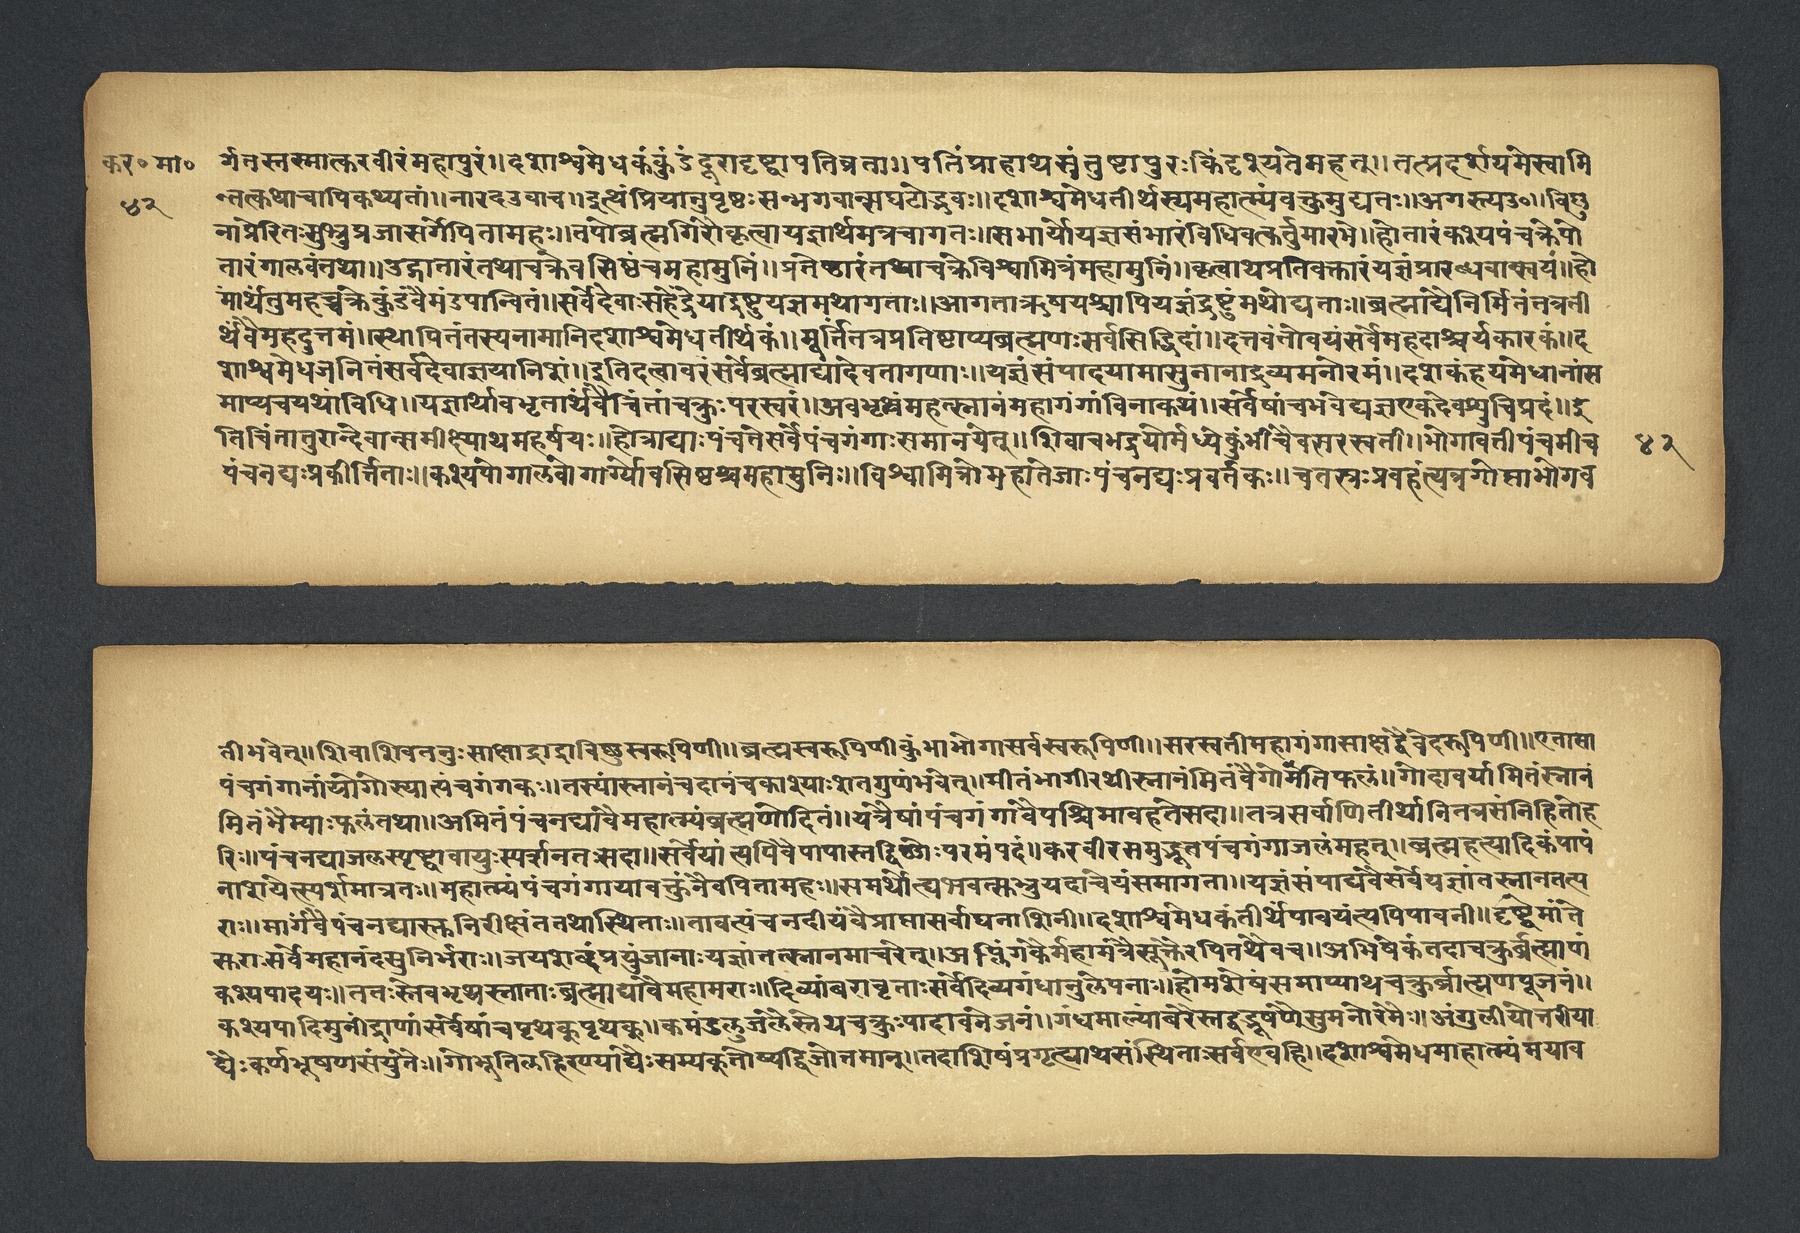 कर॰ मा॰
४२
र्गतस्तस्मात्करवीरंमहापुरं॥दशाश्वमेधकंकुंडंदूरादृष्ट्वापतिव्रता॥पतिंप्राहाथसंतुष्टापुरःकिंदृश्यतेमहत्॥तत्प्रदर्शयमेस्वामि
न्तत्कथाचापिकथ्यतां॥नारदउवाच॥इत्थंप्रियानुपृष्टःसन्भगवान्सघटोद्भवः॥दशाश्वमेधतीर्थस्यमहात्म्यंवक्तुमुद्यतः॥अगस्त्यउ॰॥विष्णु
नाप्रेरितःसुभ्रुप्रजासर्गेपितामहः॥तपोब्रह्मगिरौकृत्वायज्ञार्थमत्रचागतः॥सभार्योयज्ञसंभारंविधिवत्कर्तुमारभे॥होतारंकश्यपंचक्रेपो
तारंगालवंतथा॥उद्गातारंतथाचक्रेवसिष्ठंचमहामुनिं॥प्रतेष्ठारंतथाचक्रेविश्वामित्रंमहामुनिं॥कृत्वाथप्रतिवक्तारंयज्ञंप्रारभ्यवात्स्वयं॥हो
मार्थेतुमहच्चक्रेकुंडंवैमंडपान्वितं॥सर्वेदेवाःसहेंद्रेयाद्रष्टुयज्ञमथागताः॥आगताऋषयश्चापियज्ञंद्रष्टुंमथोद्यताः॥ब्रह्माद्यैनिर्मितंतत्रती
र्थंवैमहदुत्तमं॥स्थापितंतस्यनामानिदशाश्वमेधतीर्थकं॥मूर्त्तितत्रप्रतिष्ठाप्यब्रह्मणःसर्वसिद्धिदां॥दत्तवंतोवयंसर्वेमहदाश्चर्यकारकं॥द
शाश्वमेधजनितंसर्वदेवाज्ञयानिशं॥इतिदत्वावरंसर्वेब्रह्माद्यादेवतागणाः॥यज्ञंसंपादयामासुनानाद्रव्यमनोरमं॥दशकंहयमेधानांस
माप्यचयथाविधि॥यज्ञार्थावभृतार्थंवैचिंतांचक्रुःपरस्परं॥अवभृथंमहत्स्नानंमहागंगांविनाकथं॥सर्वेषांचभवेद्यज्ञएकंदेवशुचिप्रदं॥इ
तिचिंतातुरान्देवान्समीक्ष्याथमहर्षयः॥होत्राद्याःपंचतेसर्वेपंचगंगाःसमानयेत्॥शिवाचभद्रयोर्मध्येकुंभींचैवसरस्वती॥भोगावतीपंचमीच
४२
पंचनद्यःप्रकीर्त्तिताः॥कश्यपोगालवोगार्ग्योवसिष्ठश्चमहामुनिः॥विश्वामित्रोमहातेजाःपंचनद्यःप्रवर्तकः॥चतस्रःप्रवहंत्यत्रगोप्ताभोगव
तीभवेत्॥शिवाशिवतनुःसाक्षाद्भद्राविष्णुस्वरूपिणी॥ब्रह्मस्वरूपिणीकुंभाभोगासर्वस्वरूपिणी॥सरस्वतीमहागंगासाक्षंद्वैवेदरूपिणी॥एतासां
पंचगंगानांयोगोस्यात्पंचगंगकः॥तस्यांस्नानंचदानंचकाश्याःशतगुणंभवेत्॥मीतंभागीरथीस्नानंमितंवैगोमतिफलं॥गोदावर्यामितंस्नानं
मितंभैम्याःफलंतथा॥अमितंपंचनद्यांवैमहात्म्यंब्रह्मणोदितं॥यत्रैषांपंचगंगांवैपश्चिमावहतेसदा॥तत्रसर्वाणितीर्थानितत्रसंनिहितोह
रिः॥पंचनद्याजलस्पृष्ट्वावायुःस्पर्शनतःसदा॥सर्वेयांत्यपिवैपापास्तद्विष्णोःपरमंपदं॥करवीरसमुद्भूतपंचगंगाजलंमहत्॥ब्रह्महत्यादिकंपापं
नाशयेत्स्पर्शमात्रतः॥महात्म्यंपंचगंगायावक्तुंनैवपितामहः॥समर्थोत्द्यभवत्सुभ्रुयदाचेयंसमागता॥यज्ञंसंपाद्यवैसर्वेयज्ञांतस्नानतत्प
राः॥मार्गंवैपंचनद्यास्तुनिरीक्षंततथास्थिताः॥तावत्पंचनदीयंवैप्राप्तासर्वाघनाशिनी॥दशाश्वमेधकंतीर्थंपावयंत्यपिपावनी॥दृष्ट्वेमांते
सुराःसर्वेमहानंदसुनिर्भराः॥जयशब्दंप्रयुंजानाःयज्ञांतत्स्नानमाचरेत्॥अब्लिंगकैर्महामंत्रैसूक्तैरपितथैवच॥अभिषेकंतदाचक्रुर्ब्रह्माणं
कश्यपादयः॥ततःस्तेवभृथस्नाताःब्रह्माद्यावैमहामराः॥दिव्यांबरावृताःसर्वेदिव्यगंधानुलेपनाः॥होमशेषंसमाप्याथचक्रुर्ब्राह्मणपूजनं॥
कश्यपादिमुनींद्राणांसर्वेषांचपृथक्पृथक्॥कमंडलुजलैस्तेथचक्रुःपादावनेजनं॥गंधमाल्यांबरैस्तद्वद्भूषणैसुमनोरमैः॥अंगुलीयोत्तरीया
द्यैःकर्णभूषणसंयुतैः॥गोभूतिलहिरण्याद्यैःसम्यक्तोष्यद्विजोत्तमान्॥तदाशिषंप्रगृह्याथसंस्थिताःसर्वएवहि॥दशाश्वमेधमाहात्म्यंमयाव